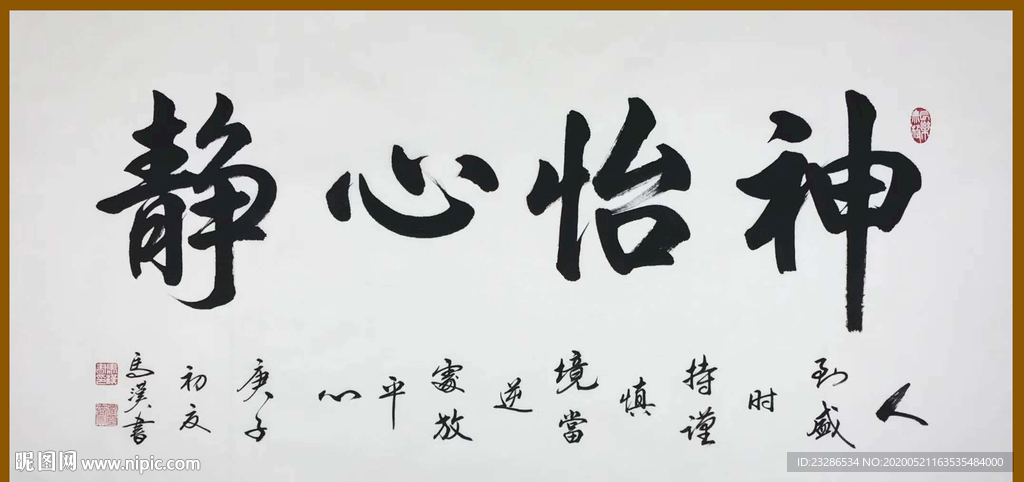 神怡心静
人到盛时持謹慎
境當逆處放平心
庚子初夏
馬漢書
昵图网 www.nipic.com
ID:23286534 NO:20200521163535484000